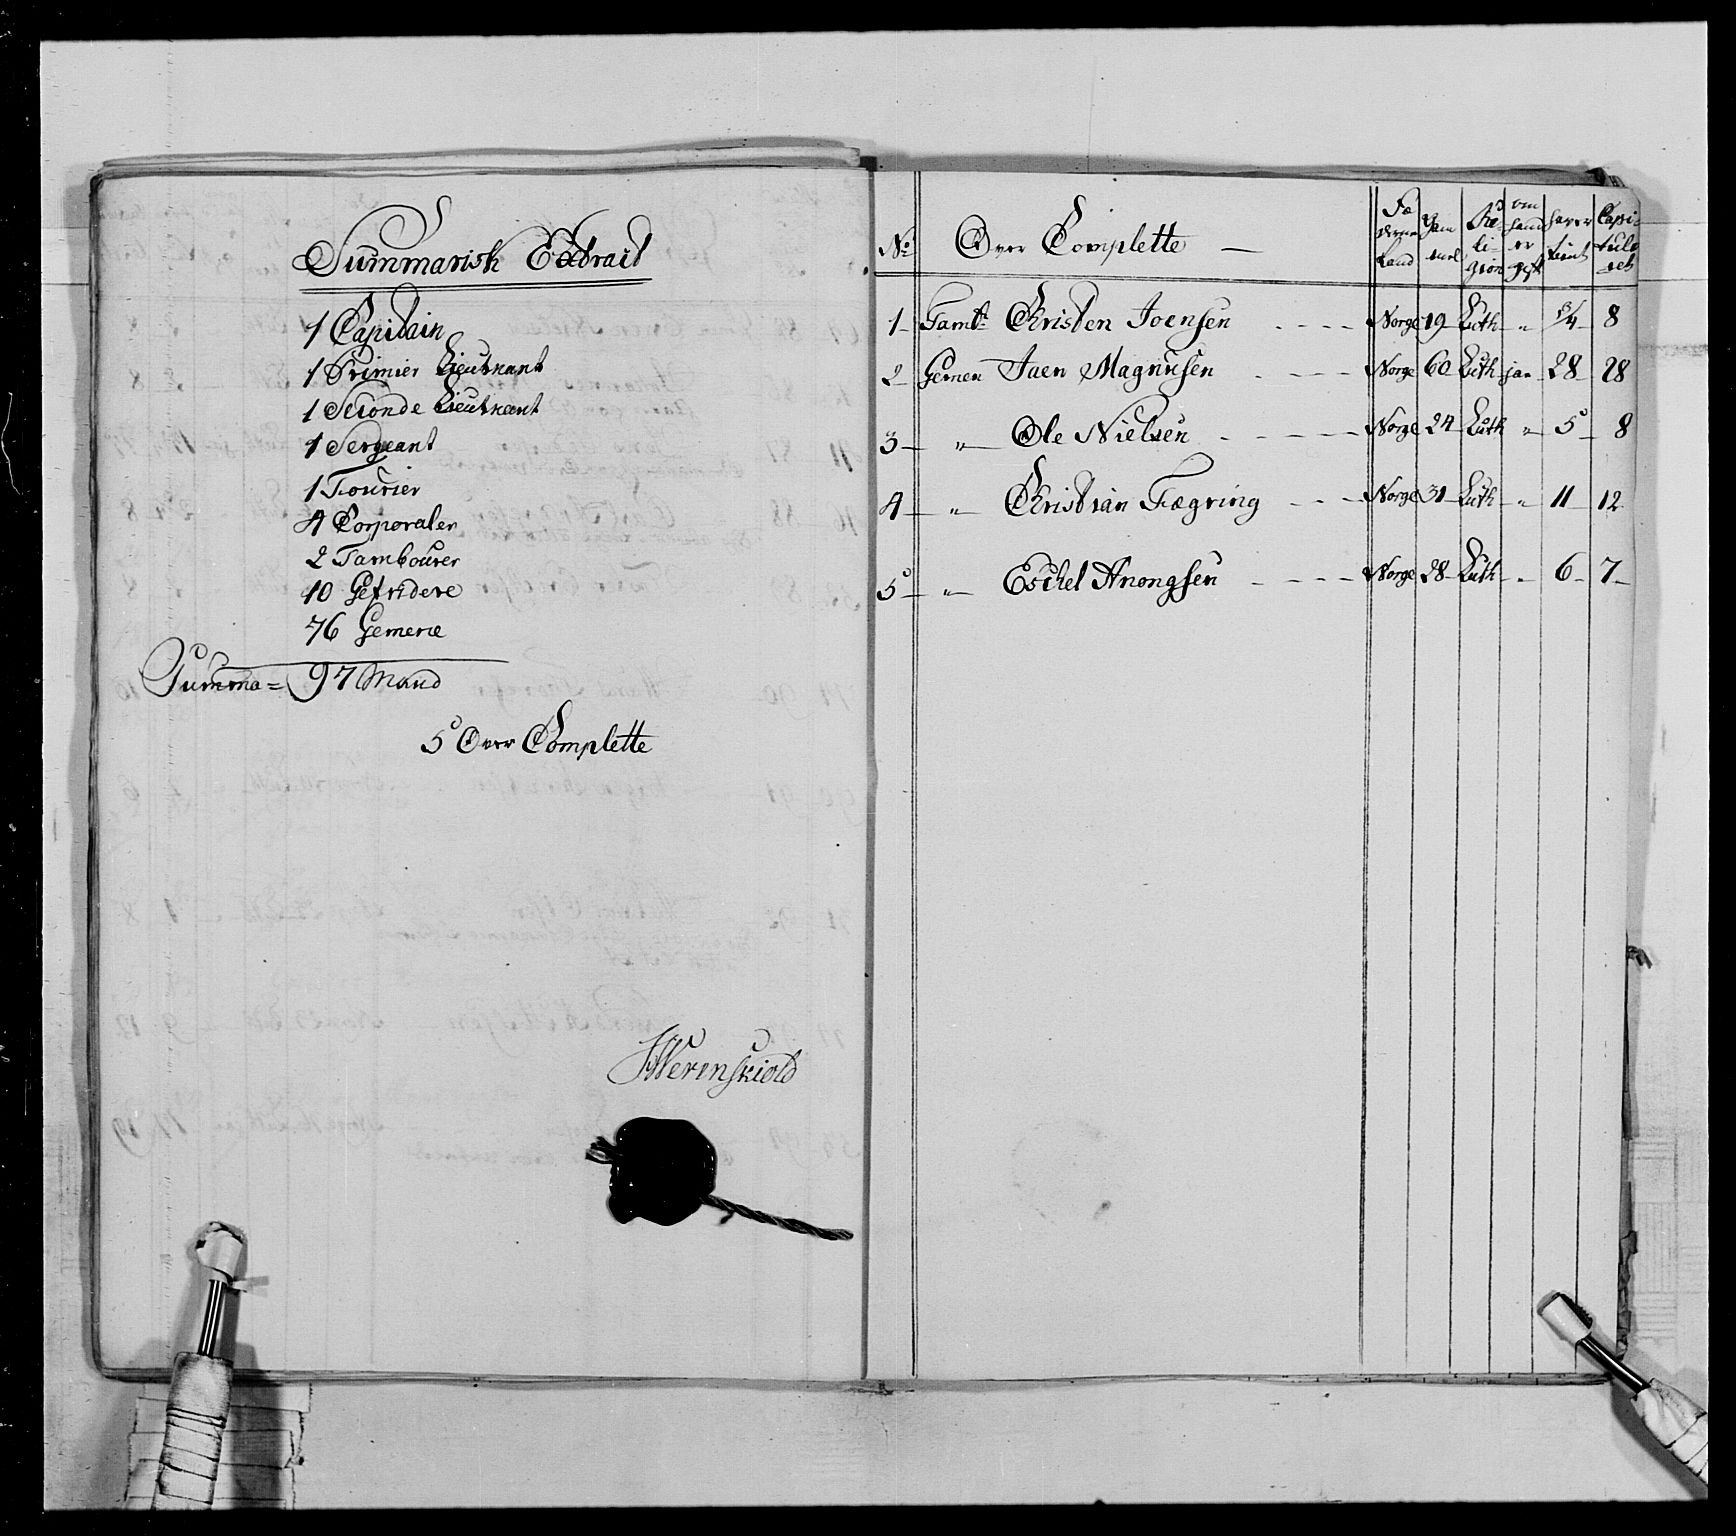 Summarisk Extract
1 Capitain
1 Primier Lieutnant
1 Seconde Lieutnant
1 Sergeant
1 Fourier
4 Corporaler
2 Tambourer
10 Gefridere
76 Gemene
Summa = 97 Mand
5 Over Complette
Werenskiold
No Over Complette Fæderne Land Gam̅el Religion om hand er gift haver tient Capituleret
1 Tambr Christen Joensen Norge 19 Luth " 3/4 8
2 Gemen Joen Magnusen Norge 60 Luth jae 28 28
3 " Ole Nielsen Norge 24 Luth " 5 8
4 " Christian Fægring Norge 31 Luth " 11 12
5 " Eschel Anongsen Norge 28 Luth " 6 7